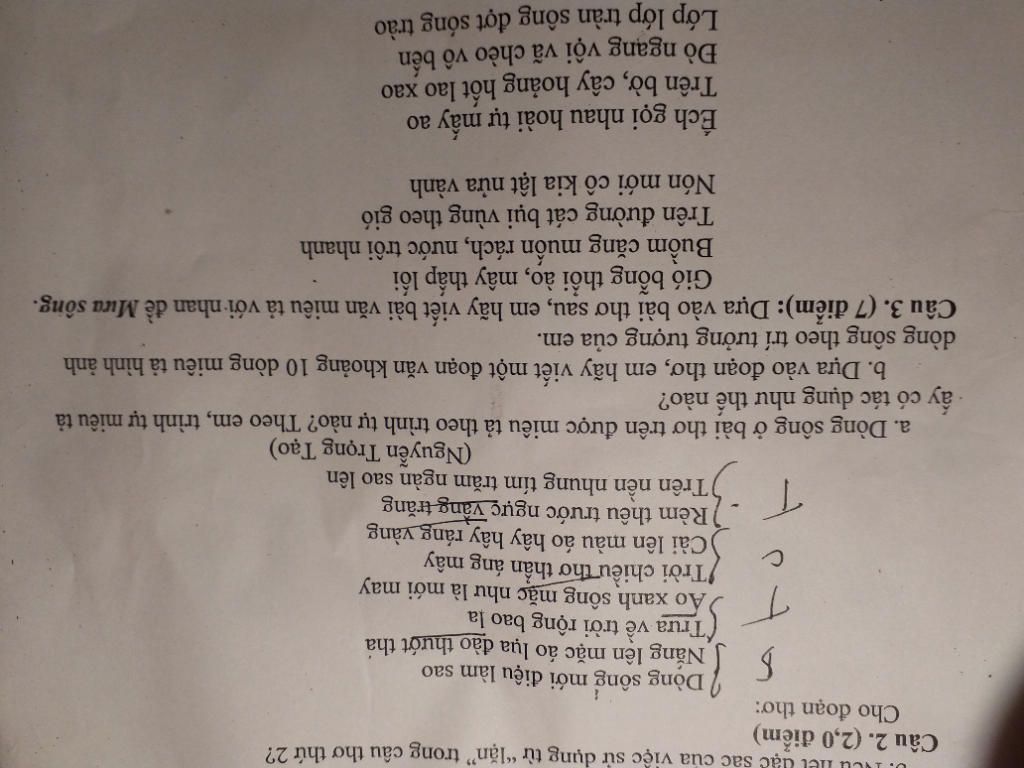 b. Nêu nét đặc sắc của việc sử dụng từ "lặn" trong câu thơ thứ 2?
Câu 2. (2,0 điểm)
Cho đoạn thơ:
Dòng sông mới điệu làm sao
Nắng lên mặc áo lụa đào thướt tha
Trưa về trời rộng bao la
Áo xanh sông mặc như là mới may
Trời chiều thơ thẩn áng mây
Cài lên màu áo hây hây ráng vàng
Rèm thêu trước ngực vầng trăng
Trên nền nhung tím trăm ngàn sao lên
(Nguyễn Trọng Tạo)
B
T
C
T
a. Dòng sông ở bài thơ trên được miêu tả theo trình tự nào? Theo em, trình tự miêu tả
ấy có tác dụng như thế nào?
b. Dựa vào đoạn thơ, em hãy viết một đoạn văn khoảng 10 dòng miêu tả hình ảnh
dòng sông theo trí tưởng tượng của em.
Câu 3. (7 điểm): Dựa vào bài thơ sau, em hãy viết bài văn miêu tả với nhan đề Mưa sông.
Gió bỗng thổi ào, mây thấp lối
Buồm căng muốn rách, nước trôi nhanh
Trên đường cát bụi vùng theo gió
Nón mới cô kia lật nửa vành
Ếch gọi nhau hoài tự mấy ao
Trên bờ, cây hoảng hốt lao xao
Đò ngang vội vã chèo vô bến
Lớp lớp tràn sông đợt sóng trào